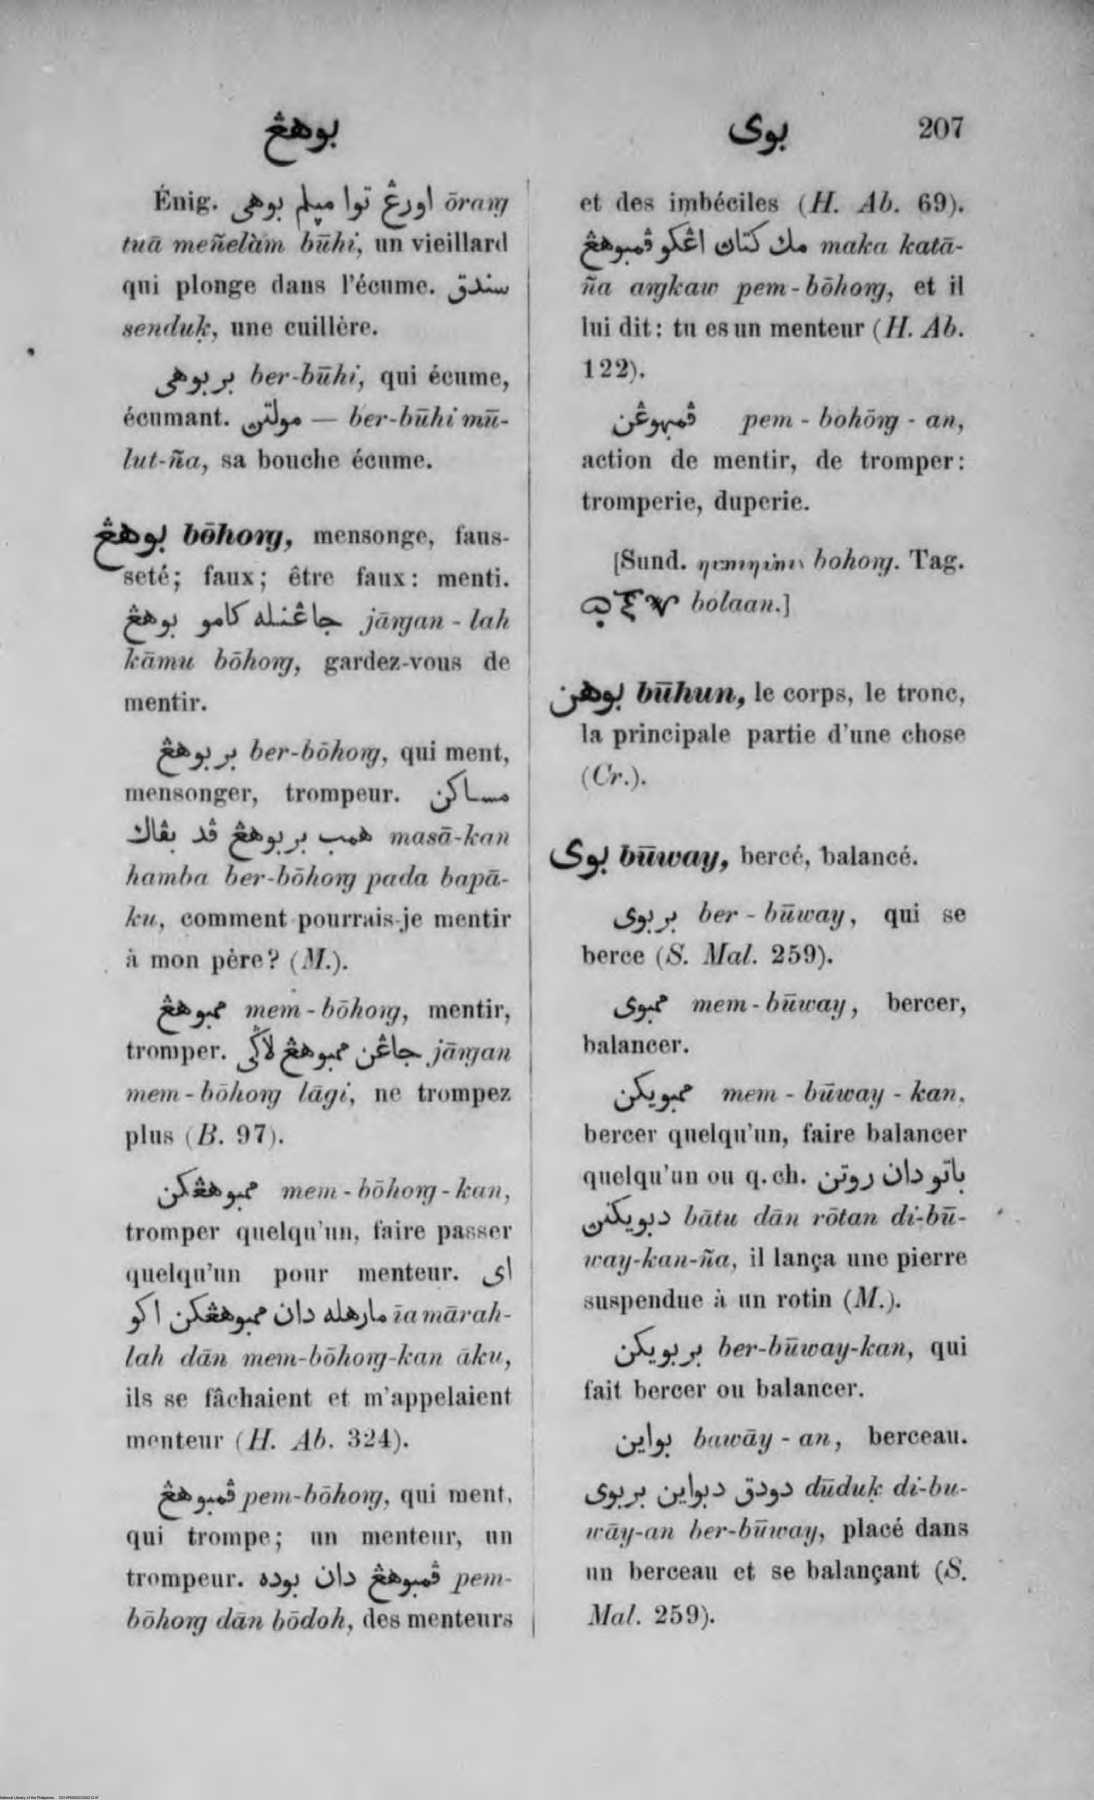 بوهڠ
بوى 207
Énig. اورڠ توا ميلم بوهى ōraŋ
tuā meñelàm būhi, un vieillard
qui plonge dans l'écume. سندق
senduḳ, une cuillère.
بربوهى ber-būhi, qui écume,
écumant. مولتن — ber-būhi mū-
lut-ña, sa bouche écume.
بوهڠ bōhoŋ, mensonge, faus-
seté; faux; être faux: menti.
جاڠنله كامو بوهڠ jāŋan-lah
kāmu bōhoŋ, gardez-vous de
mentir.
بربوهڠ ber-bōhoŋ, qui ment,
mensonger, trompeur. مساكن
همب بربوهڠ ڤد بڤاك masā-kan
hamba ber-bōhoŋ pada bapā-
ku, comment pourrais-je mentir
à mon père? (M.).
ممبوهڠ mem-bōhoŋ, mentir,
tromper. جاڠن ممبوهڠ لاڬى jāŋan
mem-bōhoŋ lāgi, ne trompez
plus (B. 97).
ممبوهڠكن mem-bōhoŋ-kan,
tromper quelqu'un, faire passer
quelqu'un pour menteur. اى
مارهله دان ممبوهڠكن اكو īa mārah-
lah dān mem-bōhoŋ-kan āku,
ils se fâchaient et m'appelaient
menteur (H. Ab. 324).
ڤمبوهڠ pem-bōhoŋ, qui ment,
qui trompe; un menteur, un
trompeur. ڤمبوهڠ دان بوده pem-
bōhoŋ dān bōdoh, des menteurs
et des imbéciles (H. Ab. 69).
مك كتاك اڠكو ڤمبوهڠ maka katā-
ña aŋkaw pem-bōhoŋ, et il
lui dit: tu es un menteur (H. Ab.
122).
ڤمبهوڠن pem-bohōŋ-an,
action de mentir, de tromper:
tromperie, duperie.
[Sund. bohoŋ. Tag.
bolaan.]
بوهن būhun, le corps, le tronc,
la principale partie d'une chose
(Cr.).
بوى būway, bercé, balancé.
بربوى ber-būway, qui se
berce (S. Mal. 259).
ممبوى mem-būway, bercer,
balancer.
ممبويكن mem-būway-kan,
bercer quelqu'un, faire balancer
quelqu'un ou q. ch. باتو دان روتن
دبويكنن bātu dān rōtan di-bū-
way-kan-ña, il lança une pierre
suspendue à un rotin (M.).
بربويكن ber-būway-kan, qui
fait bercer ou balancer.
بواين bawāy-an, berceau.
دودق دبواين بربوى dūduḳ di-bu-
wāy-an ber-būway, placé dans
un berceau et se balançant (S.
Mal. 259).